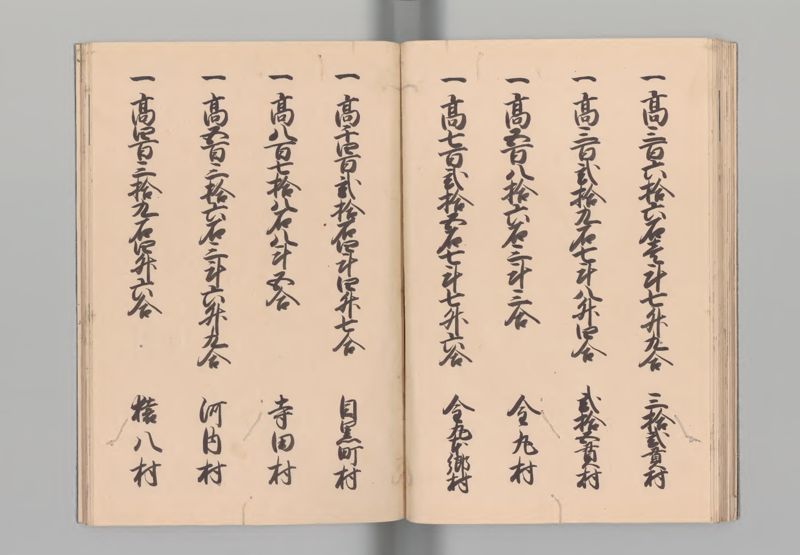 一 高三百六拾六石壱斗七升九合 三拾弐貫村
一 高三百弐拾九石七斗八升四合 弐拾六貫村
一 高五百八拾六石三斗三合 今九村
一 高七百弐拾五石七斗七升六合 今九本郷村
一 高千四百弐拾石四斗四升七合 目黒町村
一 高八百七拾八石八斗五合 寺田村
一 高五百三拾六石三斗六升九合 河内村
一 高四百三拾九石四升六合 八村